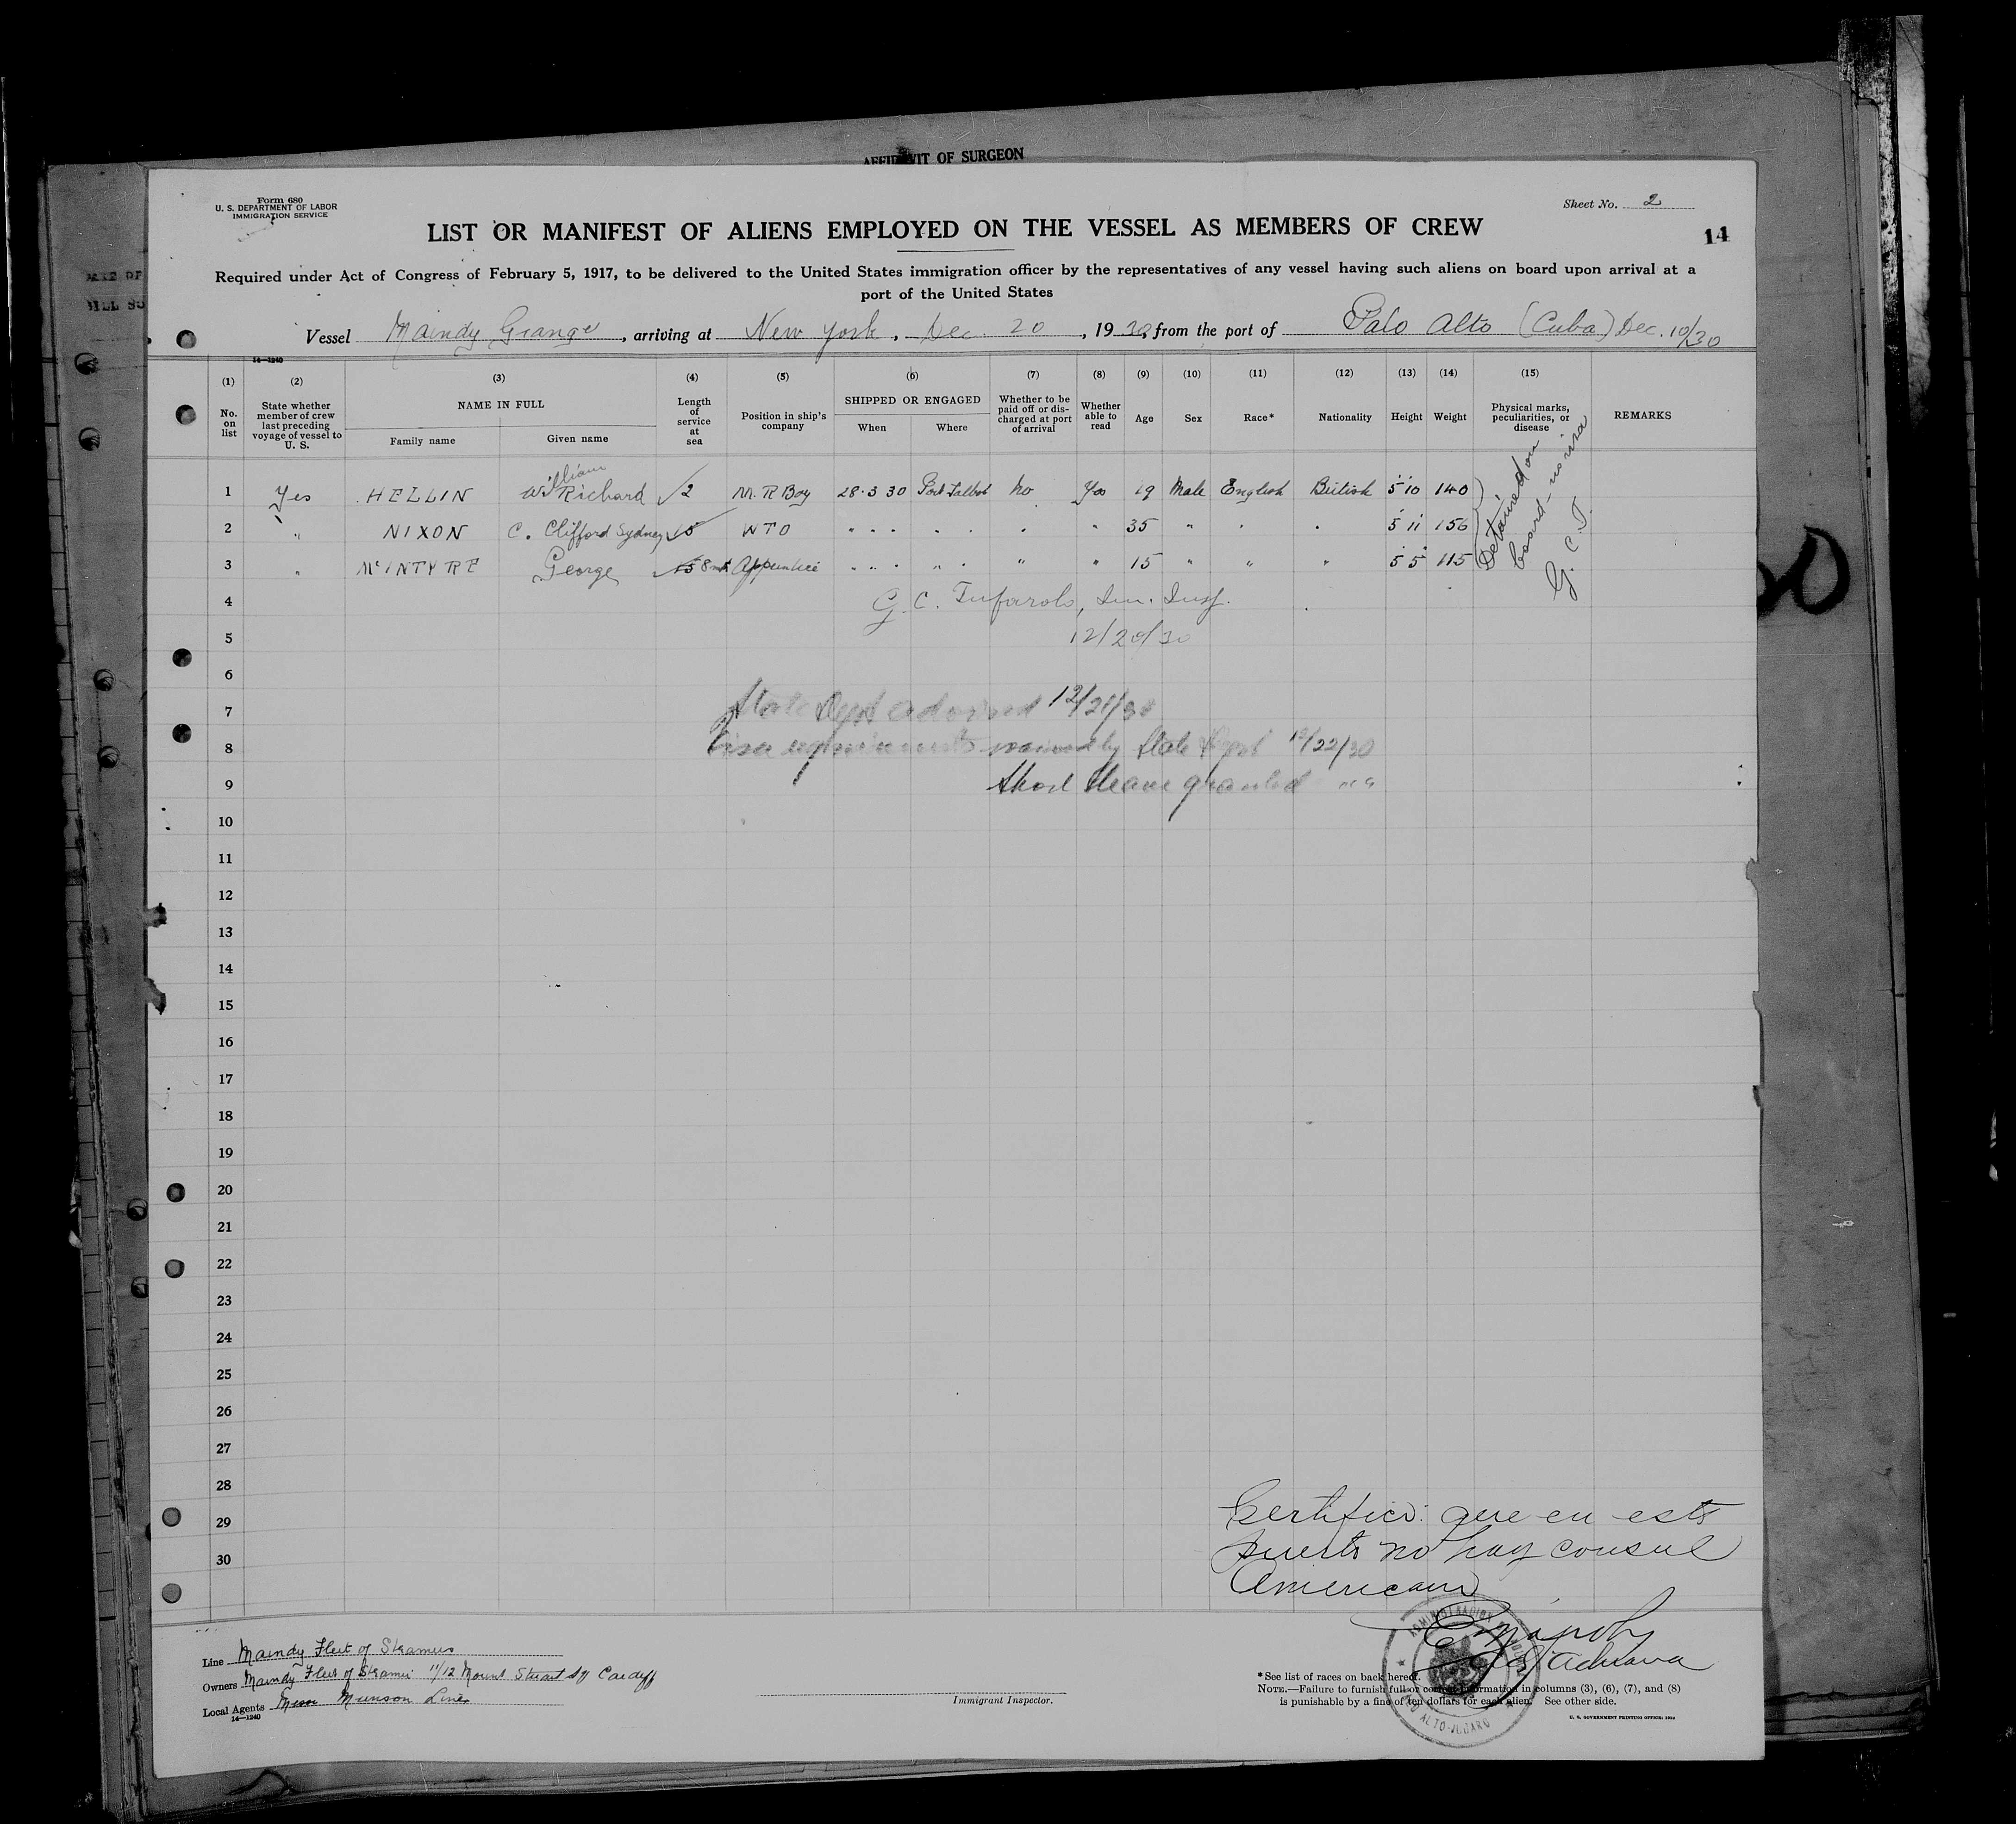 AFFIDAVIT OF SURGEON
Form 680
U. S. DEPARTMENT OF LABOR
IMMIGRATION SERVICE
Sheet No. 2
14
LIST OR MANIFEST OF ALIENS EMPLOYED ON THE VESSEL AS MEMBERS OF CREW
Required under Act of Congress of February 5, 1917, to be delivered to the United States immigration officer by the representatives of any vessel having such aliens on board upon arrival at a
port of the United States
Vessel Maindy Grange, arriving at New York, Dec. 20, 1930, from the port of Palo Alto (Cuba) Dec. 10/30
14—1240
(1) No. on list
(2) State whether member of crew last preceding voyage of vessel to U. S.
(3) NAME IN FULL
Family name
Given name
(4) Length of service at sea
(5) Position in ship's company
(6) SHIPPED OR ENGAGED
When
Where
(7) Whether to be paid off or discharged at port of arrival
(8) Whether able to read
(9) Age
(10) Sex
(11) Race*
(12) Nationality
(13) Height
(14) Weight
(15) Physical marks, peculiarities, or disease
REMARKS
William
1 Yes HELLIN Richard 2 M. R Boy 28.3.30 Port Talbot No Yes 19 Male English British 5 10 140
2 " NIXON C. Clifford Sydney 5 WTO " " " " " " " 35 " " " 5 11 156
3 " McINTYRE George 8 mts Apprentice " " " " " " " 15 " " " 5 5 115
Detained on
board - no visa
G. C. T.
4 G. C. Tufarolo, Im. Insp.
5 12/20/30
6
7 State Dept advised 12/21/30
8 Visa requirements waived by State Dept 12/22/30
9 Shore leave granted " "
10
11
12
13
14
15
16
17
18
19
20
21
22
23
24
25
26
27
28
29
30
Certifico: que en este
puerto no hay consul
Americano
Aduana
Line Maindy Fleet of Steamers
Owners Maindy Fleet of Steamers 11/12 Mount Stuart Sq Cardiff
Local Agents Munson Line
14—1240
Immigrant Inspector.
*See list of races on back hereof.
NOTE.—Failure to furnish full or correct information in columns (3), (6), (7), and (8)
is punishable by a fine of ten dollars for each alien. See other side.
U. S. GOVERNMENT PRINTING OFFICE: 1929